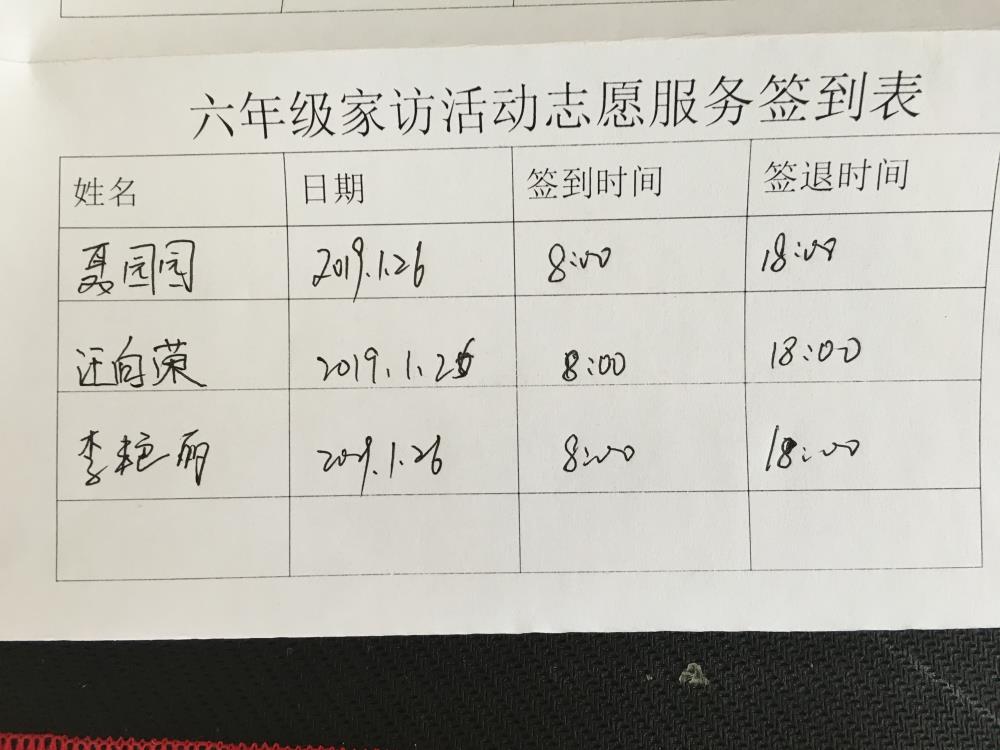 六年级家访活动志愿服务签到表
姓名 日期 签到时间 签退时间
聂园园 2019.1.26 8:00 18:00
汪向荣 2019.1.26 8:00 18:00
李艳丽 2019.1.26 8:00 18:00